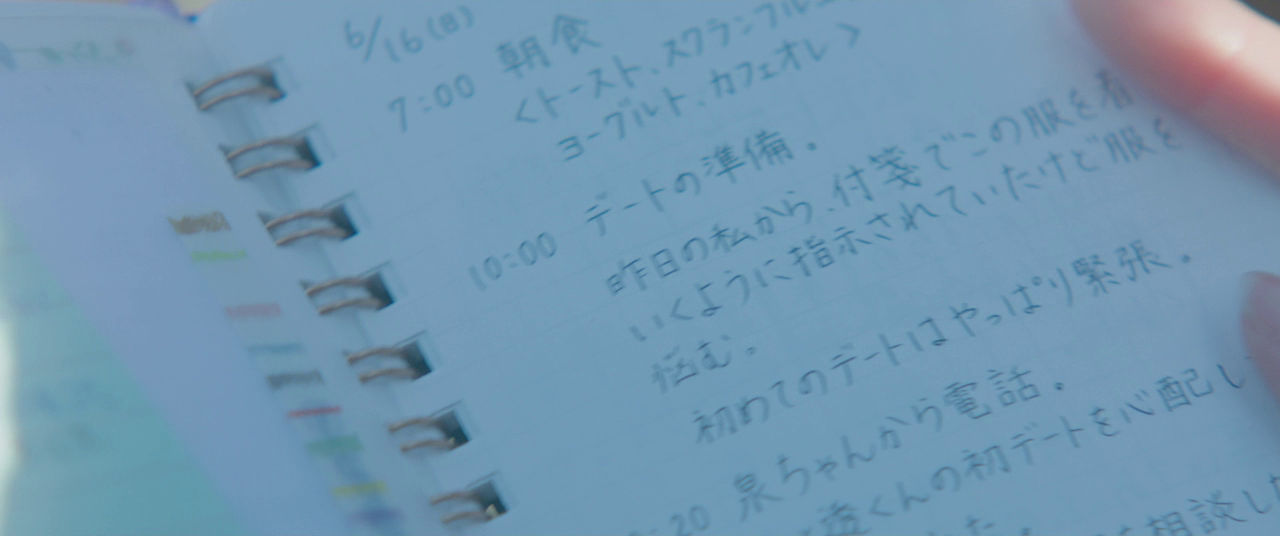 6/16(日)
7:00 朝食
<トースト、スクランブル
ヨーグルト、カフェオレ>
10:00 デートの準備。
昨日の私から、付箋でこの服を着
いくように指示されていたけど服を
悩む。
初めてのデートはやっぱり緊張。
:20 泉ちゃんから電話。
透くんの初デートを心配し
た。
相談した